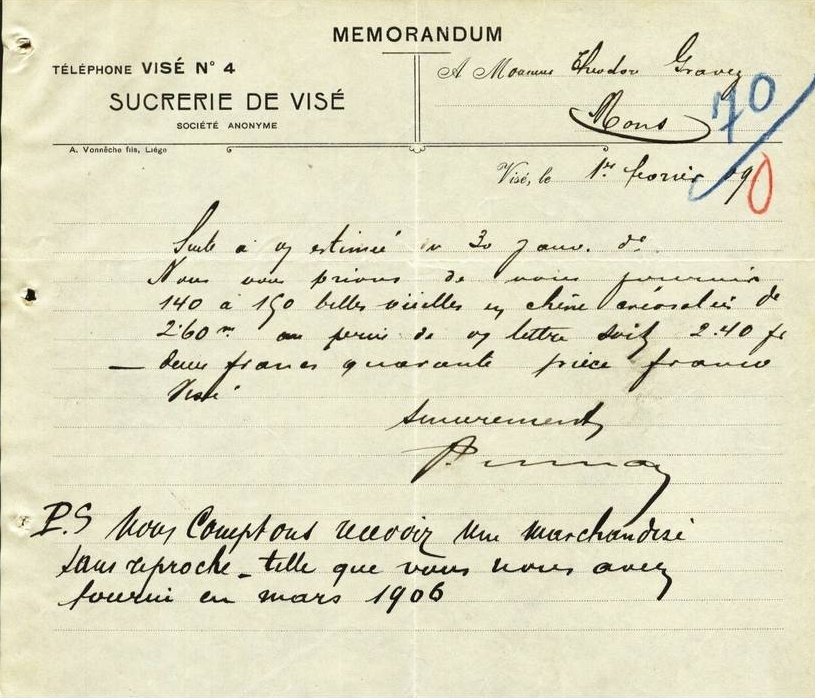 MEMORANDUM
TÉLÉPHONE VISÉ N° 4
SUCRERIE DE VISÉ
SOCIÉTÉ ANONYME
A. Vonnêche fils, Liége
A Monsieur Theodor Gravez
Mons
70
Visé, le 1er février 09
0
Suite à v/ estimée du 30 janv. dr
Nous vous prions de nous fournir
140 à 150 belles vieilles en chêne créosotées de
2.60 m au prix de v/ lettre soit 2.40 fr
— deux francs quarante pièce franco
Visé
Sincèrement
P.S Nous Comptons recevoir une marchandise
sans reproche - telle que vous nous avez
fourni en mars 1906